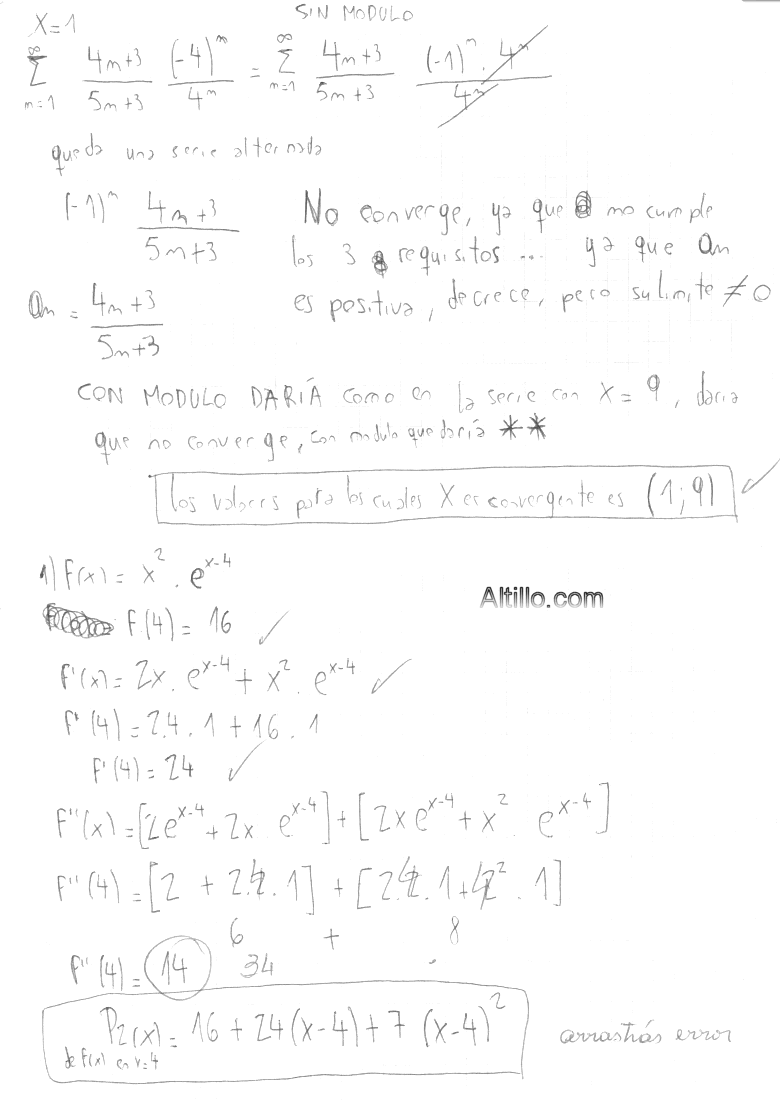 X=1 SIN MODULO
∞ ∑ n=1 4n+3 / 5n+3 (-4)^n / 4^n = ∞ ∑ n=1 4n+3 / 5n+3 (-1)^n . 4^n / 4^n
queda una serie alternada
(-1)^n 4n+3 / 5n+3 No converge, ya que no cumple
los 3 requisitos ... ya que an
an = 4n+3 / 5n+3 es positiva, decrece, pero su limite ≠ 0
CON MODULO DARÍA como en la serie con X = 9, daria
que no converge, con modulo que daría **
los valores para los cuales X es convergente es (1;9) ✓
1) F(x) = x² . e^(x-4)
Altillo.com
F(4) = 16 ✓
F'(x) = 2x . e^(x-4) + x² . e^(x-4) ✓
F'(4) = 2.4 . 1 + 16 . 1
F'(4) = 24 ✓
F''(x) = [2e^(x-4) + 2x e^(x-4)] + [2xe^(x-4) + x² e^(x-4)]
F''(4) = [2 + 2. . 1] + [2. . 1 + ² . 1]
6 + 8
F''(4) = 14 34
P2(x) = 16 + 24(x-4) + 7 (x-4)²
de F(x) en x=4
arrastrás error